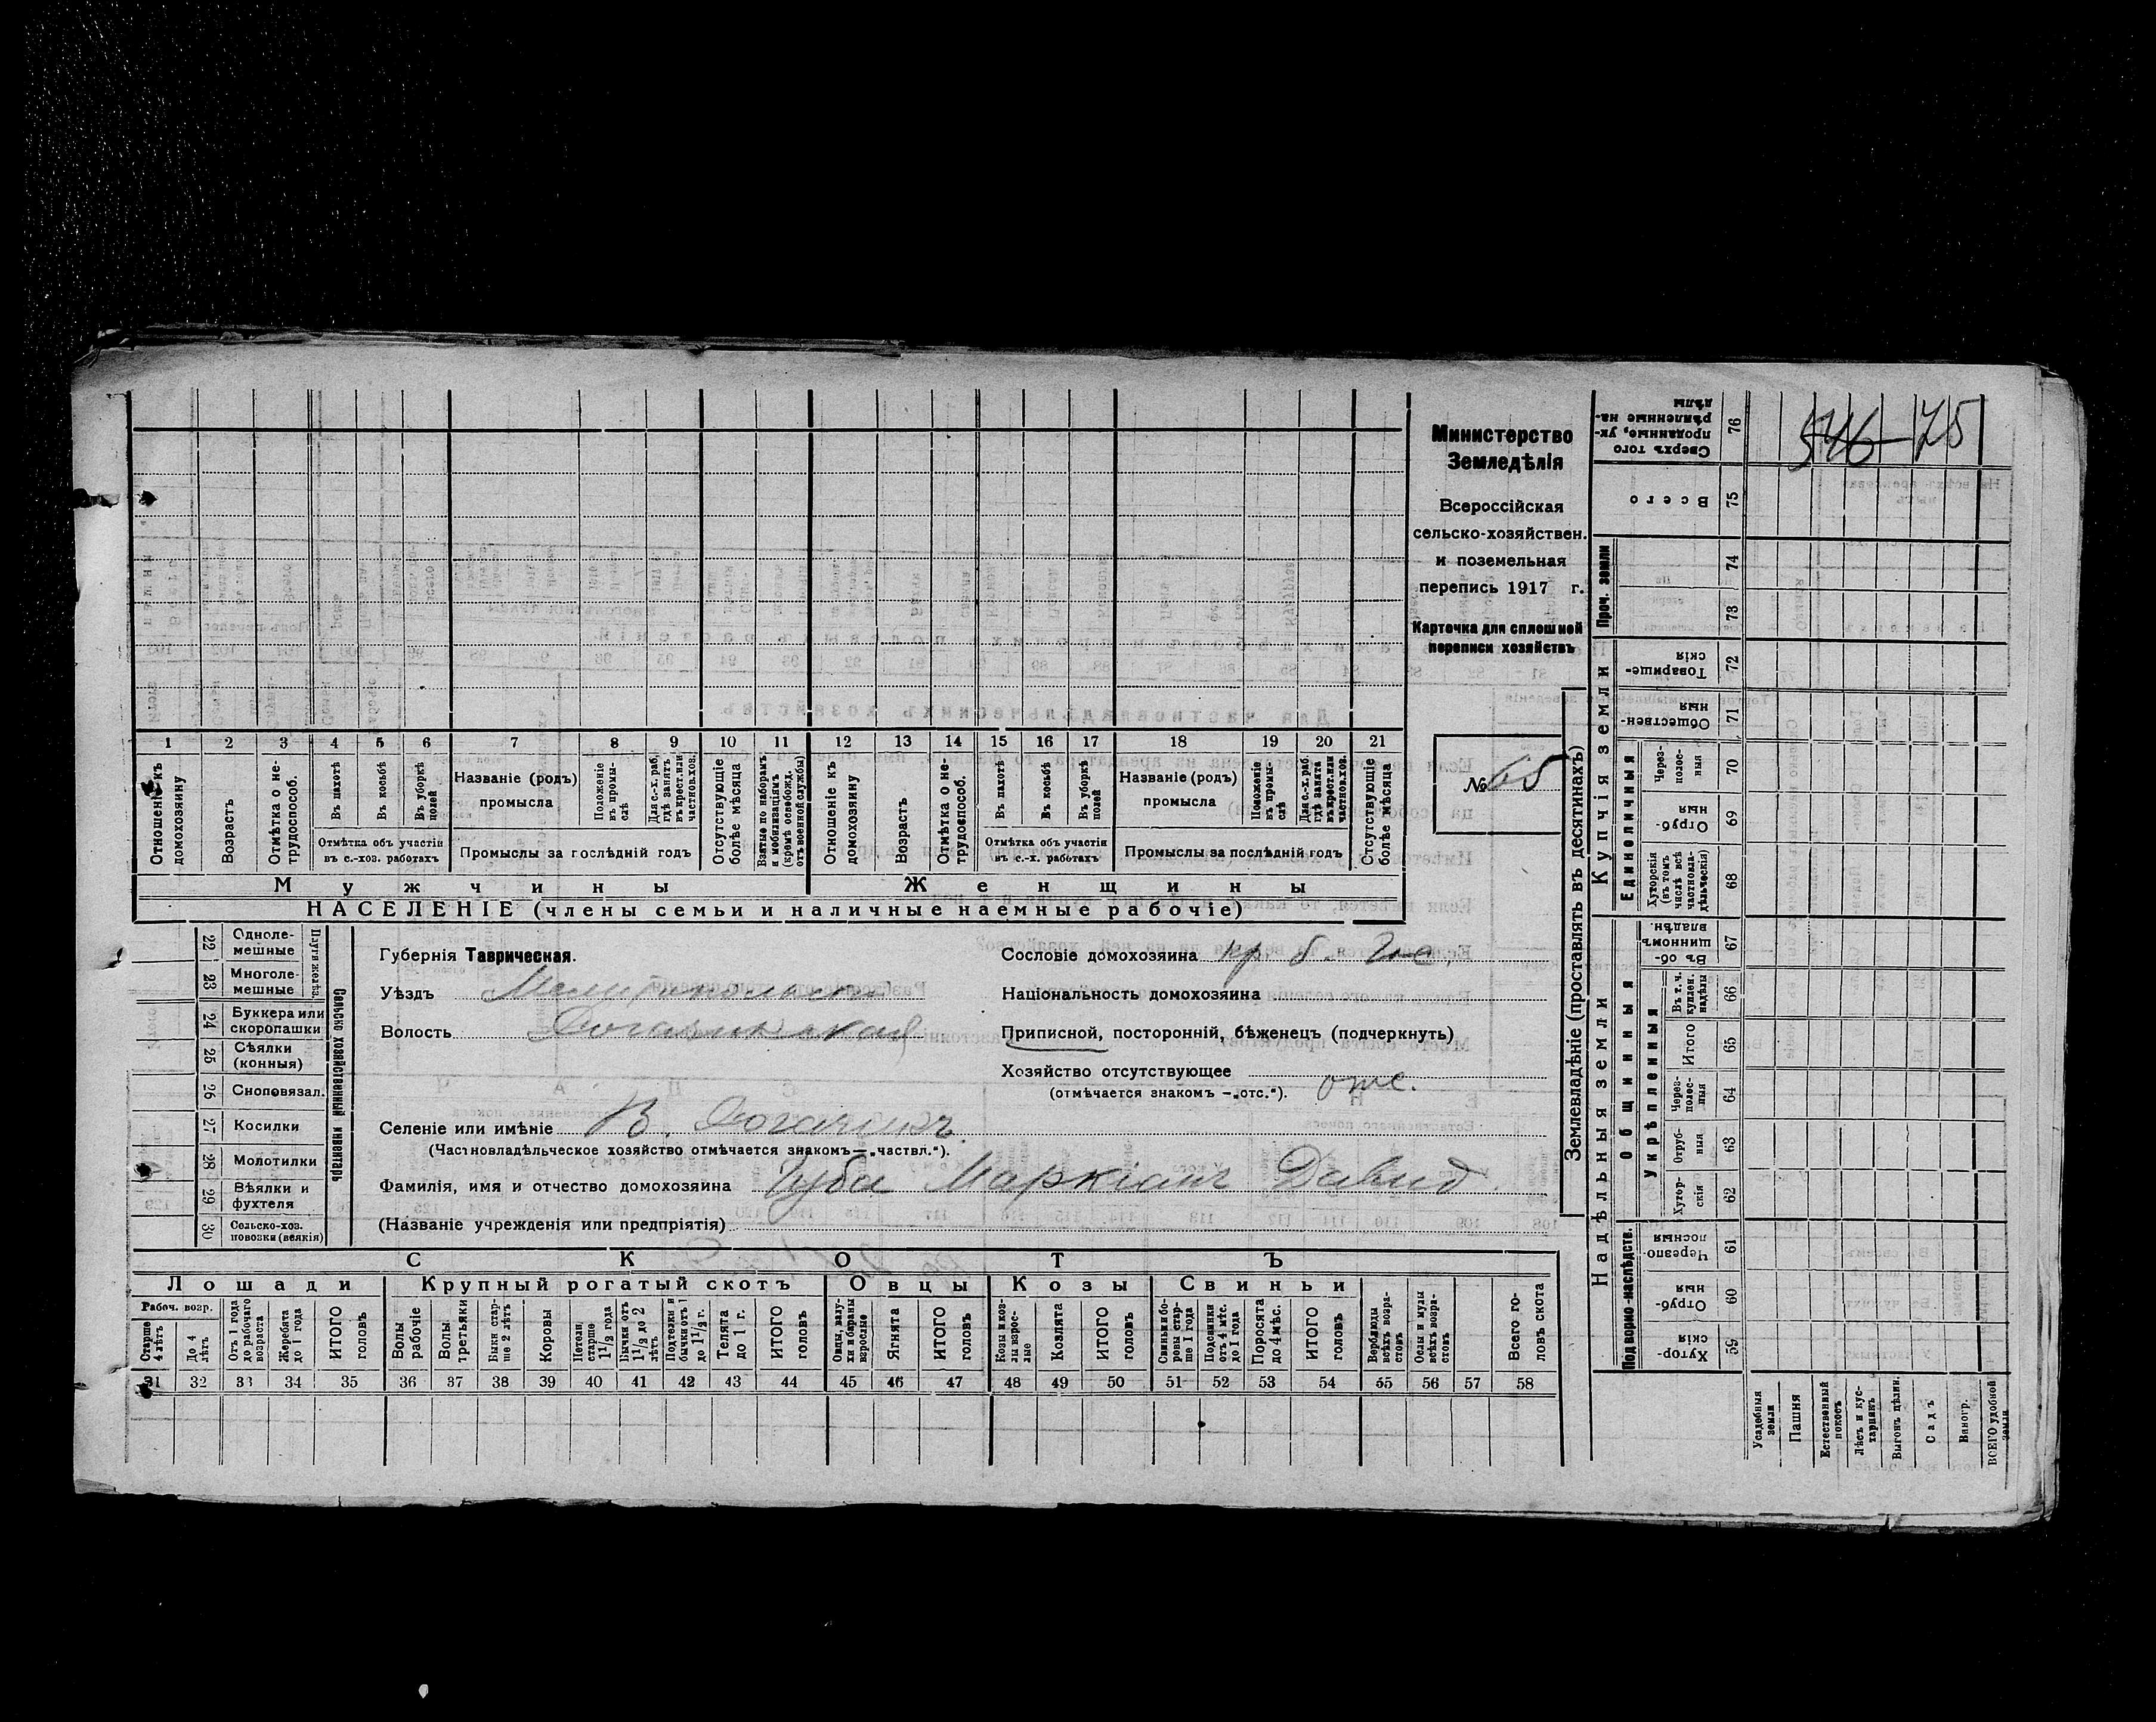 546 75
Министерство
Земледѣлія
Всероссійская
сельско-хозяйствен.
и поземельная
перепись 1917 г.
Карточка для сплошной
переписи хозяйствъ
№ 65
1 2 3 4 5 6 7 8 9 10 11 12 13 14 15 16 17 18 19 20 21
Отношеніе къ домохозяину
Возрастъ
Отмѣтка о не-трудоспособ.
Въ пахотѣ
Въ косьбѣ
Въ уборкѣ полей
Отмѣтка объ участіи
въ с.-хоз. работахъ
Названіе (родъ)
промысла
Положеніе въ промы-слѣ
Для с.-х. раб. гдѣ занятъ въ крест. или частнов. хоз.
Промыслы за послѣдній годъ
Отсутствующіе болѣе мѣсяца
Взятые по наборамъ и мобилизаціямъ (кромѣ освобожд. отъ военной службы)
Отношеніе къ домохозяину
Возрастъ
Отмѣтка о не-трудоспособ.
Въ пахотѣ
Въ косьбѣ
Въ уборкѣ полей
Отмѣтка объ участіи
въ с.-х. работахъ
Названіе (родъ)
промысла
Положеніе въ промы-слѣ
Для с.-х. раб. гдѣ занята въ крест. или частнов. хоз.
Промыслы за послѣдній годъ
Отсутствующіе болѣе мѣсяца
Мужчины Женщины
НАСЕЛЕНІЕ (члены семьи и наличные наемные рабочіе)
22 Одноле-мешные
23 Многоле-мешные
Плуги желѣз.
24 Буккера или скоропашки
25 Сѣялки (конныя)
26 Сноповязал.
27 Косилки
28 Молотилки
29 Вѣялки и фухтеля
30 Сельско-хоз. повозки (всякія)
Сельско хозяйственный инвентарь
Губернія Таврическая.
Уѣздъ Мелитопольск
Волость
Селеніе или имѣніе В. Рогачикъ
(Частновладѣльческое хозяйство отмѣчается знакомъ — „частвл.“).
Фамилія, имя и отчество домохозяина Губа Маркіанъ Давид
(Названіе учрежденія или предпріятія)
Сословіе домохозяина кр б.
Національность домохозяина
Приписной, посторонній, бѣженецъ (подчеркнуть)
Хозяйство отсутствующее отс.
(отмѣчается знакомъ — „отс.“).
СКОТЪ
Лошади Крупный рогатый скотъ Овцы Козы Свиньи
Рабоч. возр.
Старше 4 лѣтъ
До 4 лѣтъ
Отъ 1 года до рабочаго возраста
Жеребята до 1 года
ИТОГО головъ
Волы рабочіе
Волы третьяки
Быки стар-ше 2 лѣтъ
Коровы
Нетели старше 1½ года
Бычки отъ 1½ до 2 лѣтъ
Подтелки и бычки отъ 1 до 1½ г.
Телята до 1 г.
ИТОГО головъ
Овцы, валу-хи и бараны взрослые
Ягнята
ИТОГО головъ
Козы и коз-лы взрос-лые
Козлята
ИТОГО головъ
Свиньи и бо-ровы стар-ше 1 года
Подсвинки отъ 4 мѣс. до 1 года
Поросята до 4 мѣс.
ИТОГО головъ
Верблюды всѣхъ возра-стовъ
Ослы и мулы всѣхъ возра-стовъ
Всего го-ловъ скота
31 32 33 34 35 36 37 38 39 40 41 42 43 44 45 46 47 48 49 50 51 52 53 54 55 56 57 58
Землевладѣніе (проставлять въ десятинахъ)
Сверхъ того проданные, ук-рѣпленные на-дѣлы 76
Всего 75
Проч. земли 74 73
Купчія земли
Товарище-скія 72
Обществен-ныя 71
Единоличныя
Через-полос-ныя 70
Отруб-ныя 69
Хуторскія (въ томъ числѣ всѣ частновла-дѣльческія) 68
Надѣльныя земли
Общинныя
Въ об-щинномъ владѣн. 67
Укрѣпленныя
Въ т. ч. куплен. надѣлы 66
Итого 65
Через-полос-ныя 64
Отруб-ныя 63
Хутор-скія 62
Подворно-наслѣдств.
Черезпо-лосныя 61
Отруб-ныя 60
Хутор-скія 59
Усадебныя земли
Пашня
Естественный покосъ
Лѣсъ и кус-тарникъ
Выгонъ цѣлин.
Садъ
Виногр.
ВСЕГО удобной земли